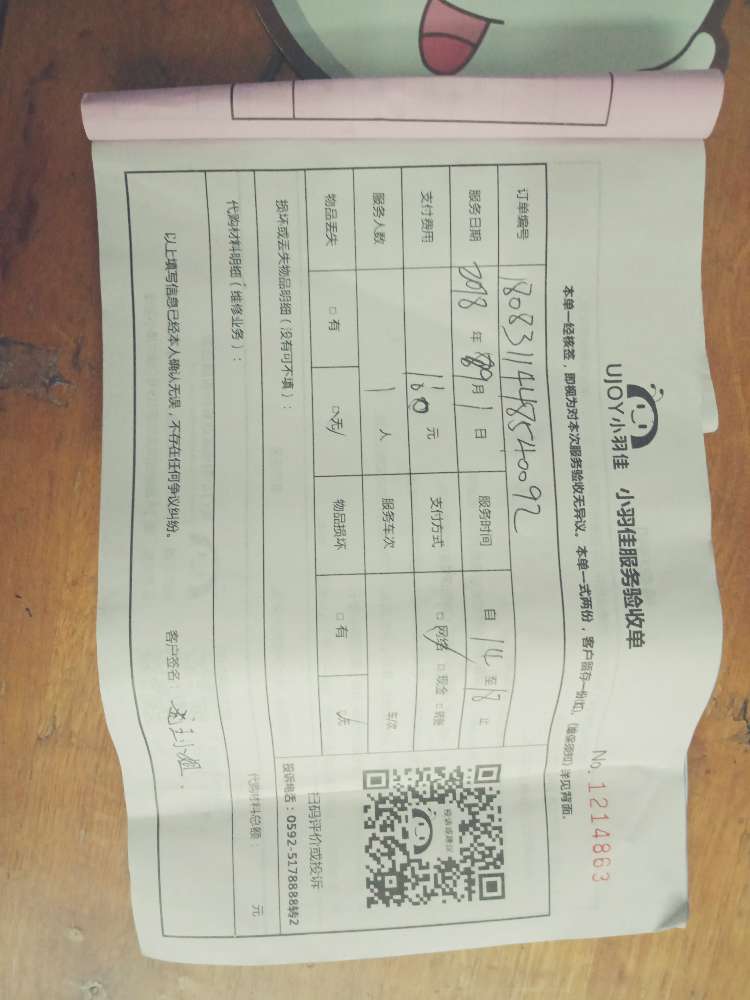 UJOY小羽佳 小羽佳服务验收单
No. 1214863
本单一经核签，即视为对本次服务验收无异议。本单一式两份，客户留存一份(如，《售保须知》详见背面。
订单编号 1808311448540092
服务日期 2018 年 09 月 1 日 服务时间 自 14 至 18 止
支付费用 160 元 支付方式 □网络 □现金 □
服务人数 1 人 服务车次 车/次
物品丢失 □有 □无 物品损坏 □有 □无
损坏或丢失物品明细（没有可不填）：
投诉或建议
扫码评价或投诉
投诉电话：0592-5178888转2
代购材料明细（维修业务）：
代购材料总额： 元
以上填写信息已经本人确认无误，不存在任何争议纠纷。 客户签名：